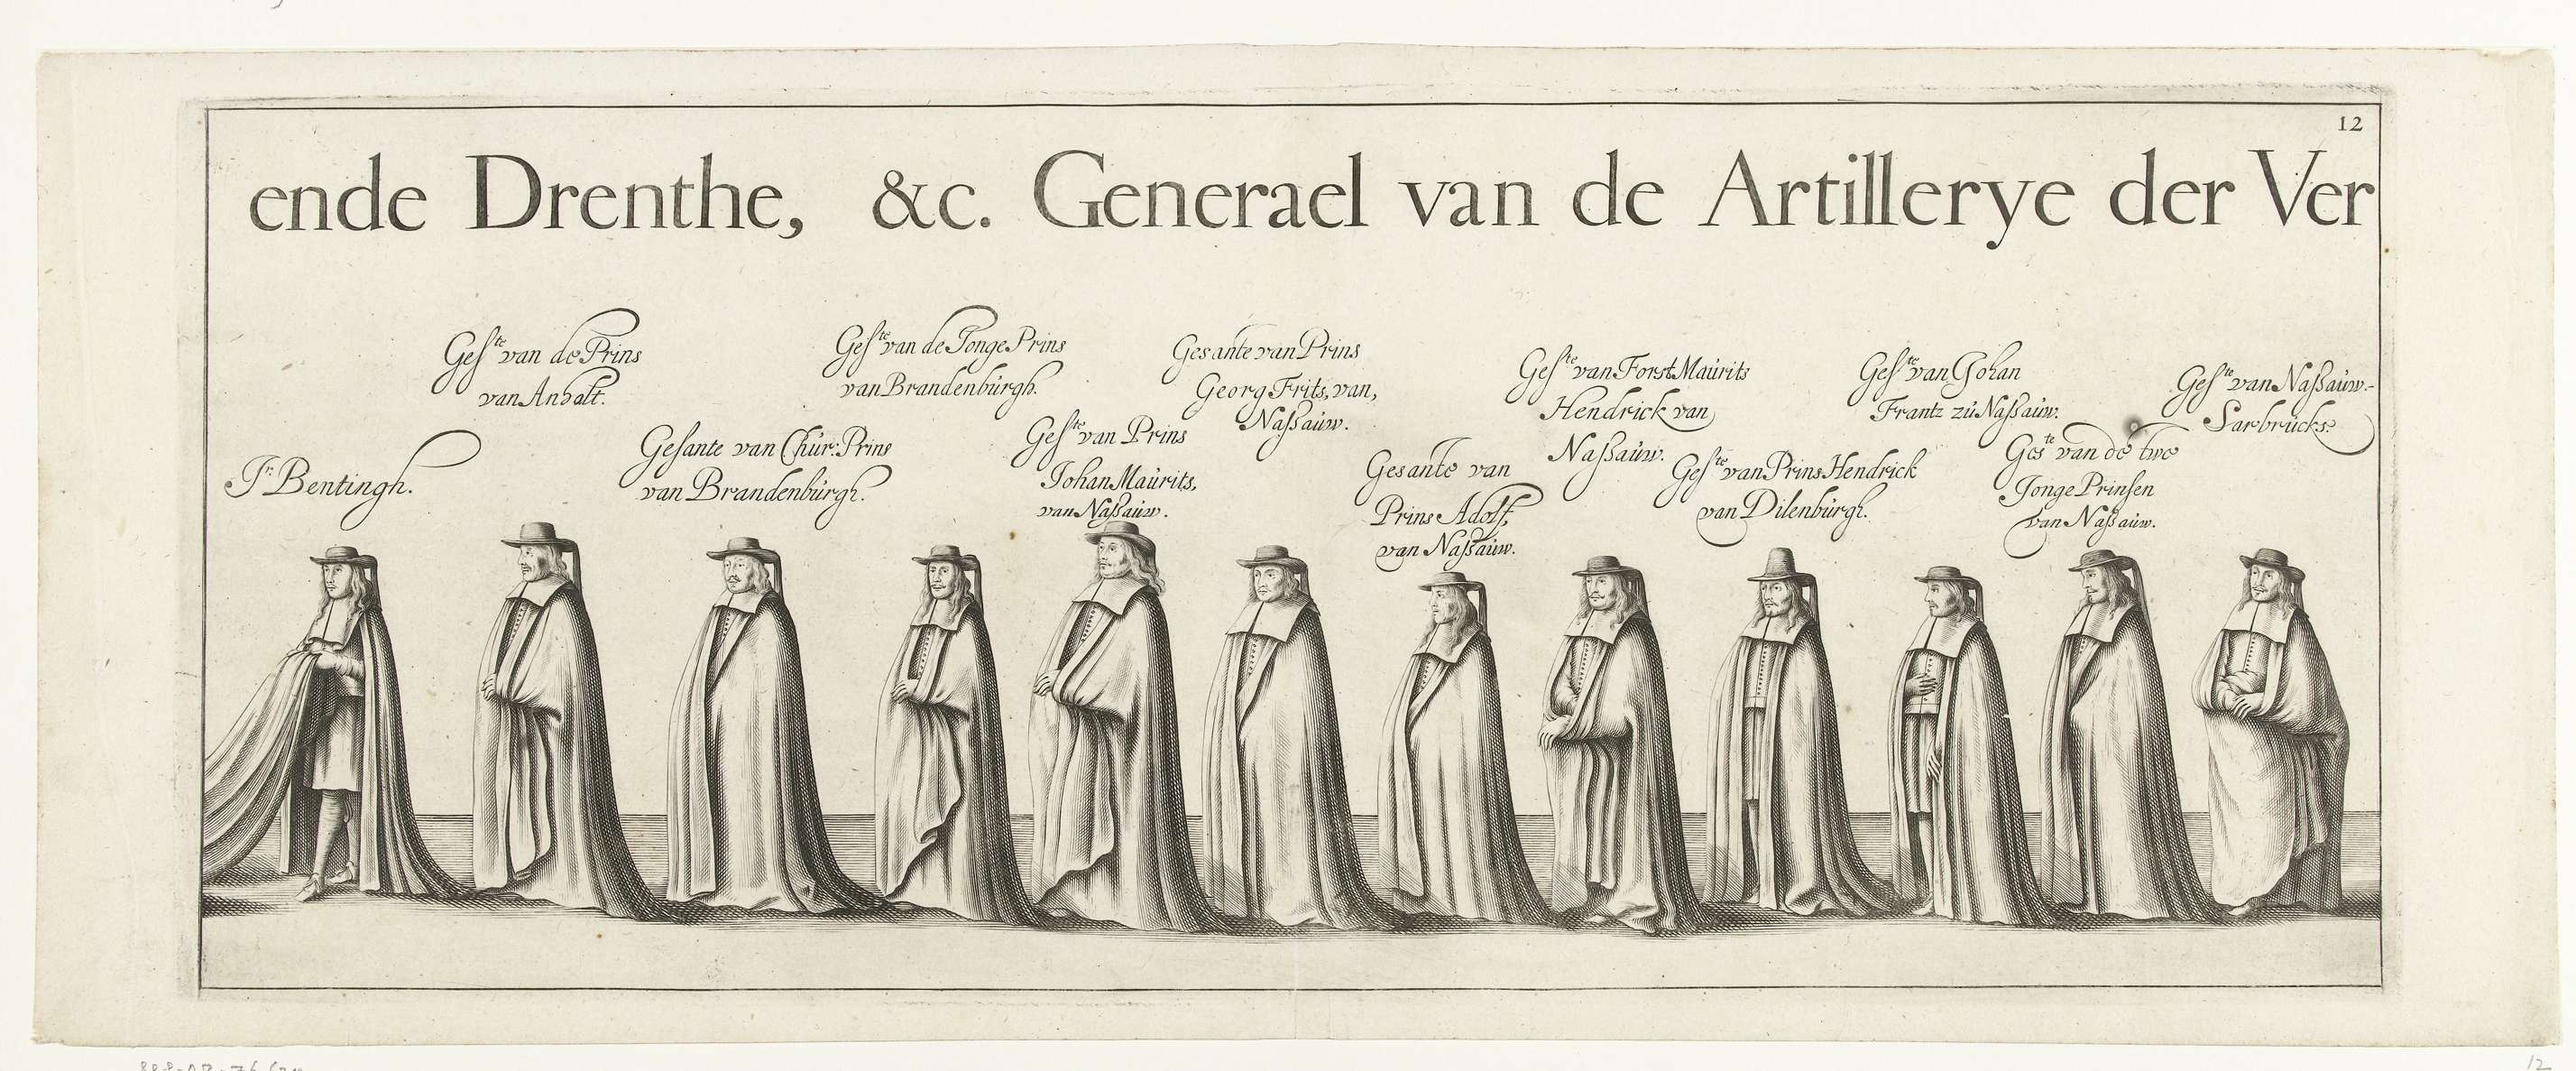 12
ende Drenthe, &c. Generael van de Artillerye der Ver
Jr. Bentingh.
Geste van de Prins
van Anhalt.
Gesante van Chur: Prins
van Brandenburgh.
Geste van de Jonge Prins
van Brandenburgh.
Geste van Prins
Johan Maurits,
van Naßauw.
Gesante van Prins
Georg Frits, van,
Naßauw.
Gesante van
Prins Adolf,
van Naßauw.
Geste van Forst Maurits
Hendrick van
Naßauw.
Geste van Prins Hendrick
van Dilenburgh.
Geste van Johan
Frantz zu Naßauw.
Geste van de twe
Jonge Prinsen
van Naßauw.
Geste van Naßauw-
Sarbrucks.
12